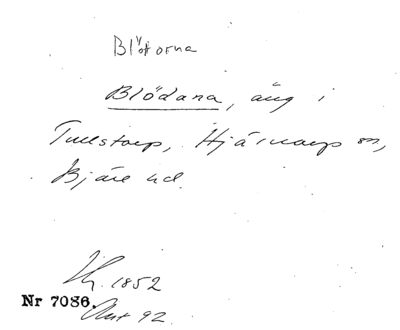 Blötorna
Blödana, äng i
Tullstorp, Hjärnarp sn,
Bjäre hd.
1852
Nr 7086.
Akt 92